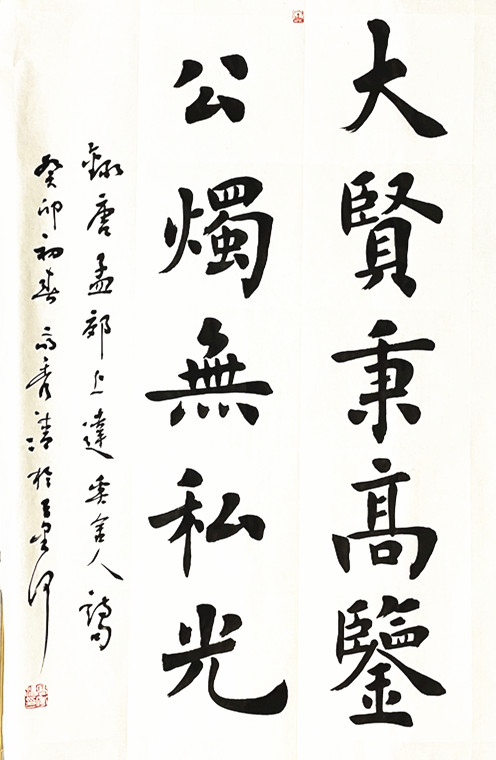 大賢秉高鑒
公燭無私光
錄唐孟郊上達奚舍人詩
癸卯初春高秀清於